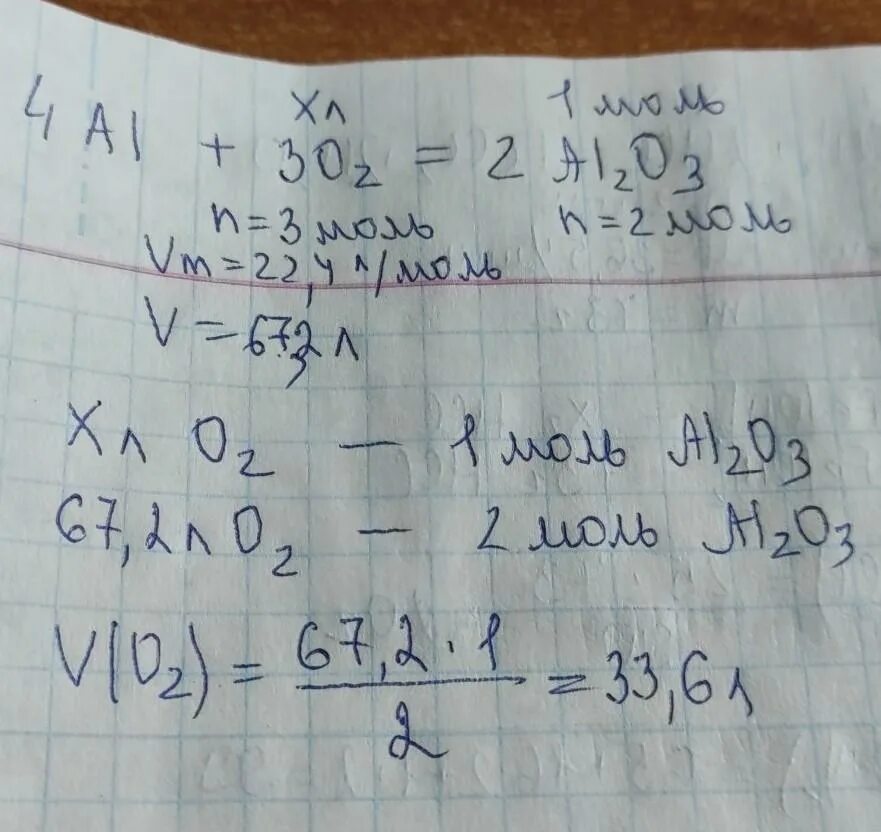 Xл 1 моль
4 Al + 3O₂ = 2 Al₂O₃
n=3 моль n=2 моль
Vm=22,4 л/моль
V=67,2 л
Xл O₂ — 1 моль Al₂O₃
67,2л O₂ — 2 моль Al₂O₃
V(O₂) = 67,2·1 / 2 = 33,6л